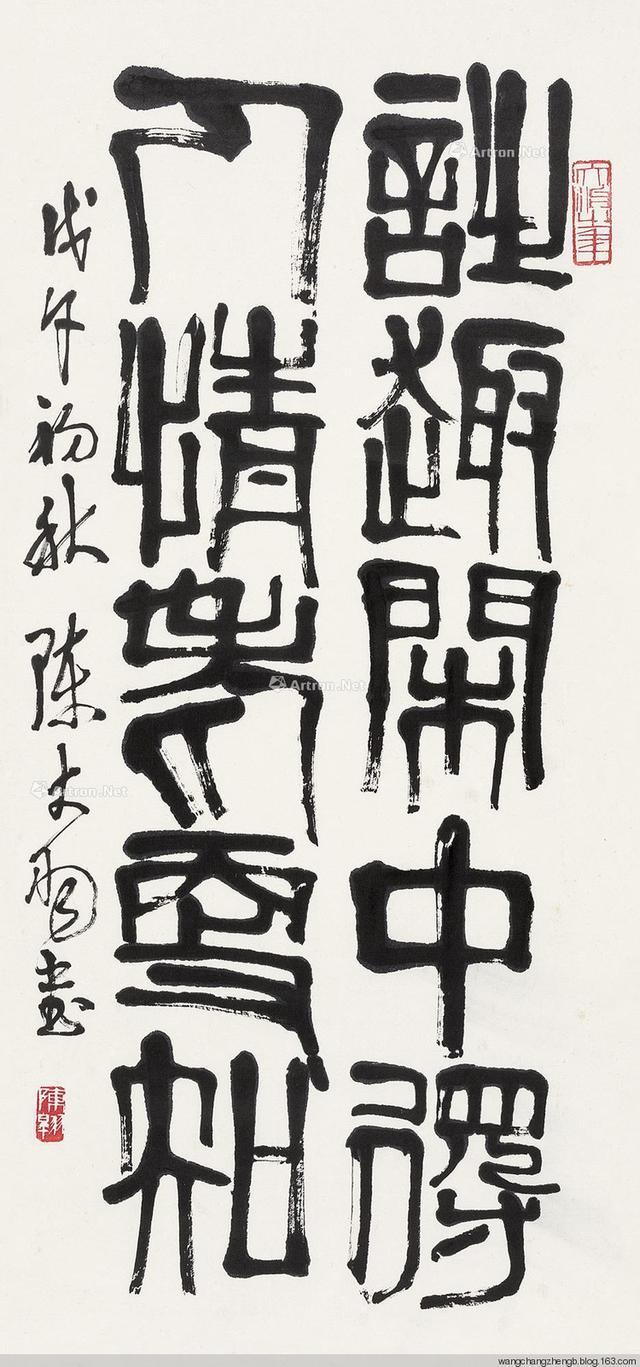 詩趣閑中得
人情老更知
戊午初秋 陈大羽書
陳翱
Artron.Net
Artron.Net
Artron.Net
wangchangzhengb.blog.163.com